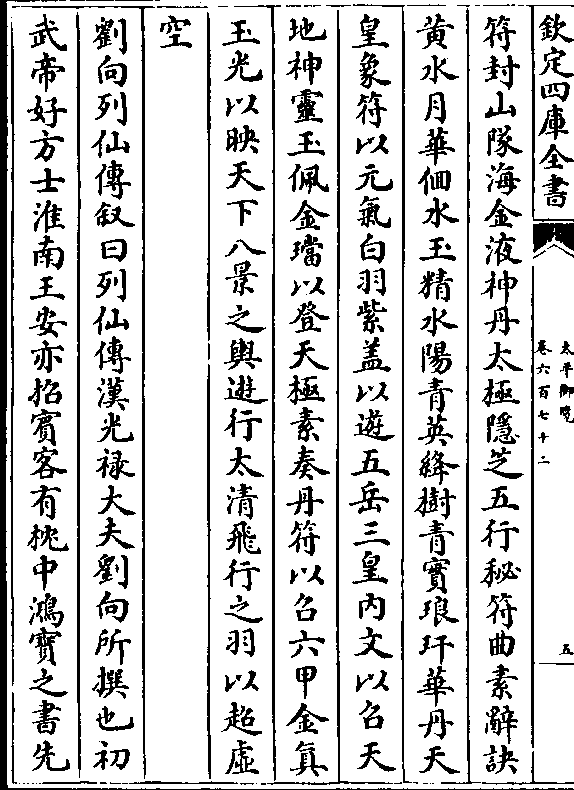 欽定四庫全書
太平御覽
卷六百七十二
五
符封山隊海金液神丹太極隱芝五行秘符曲素辭訣
黄水月華佪水玉精水陽青英絳樹青實琅玕華丹天
皇象符以元氣白羽紫盖以遊五岳三皇内文以召天
地神靈玉佩金璫以登天極素奏丹符以召六甲金真
玉光以映天下八景之輿遊行太清飛行之羽以超虛
空
劉向列仙傳叙曰列仙傳漢光禄大夫劉向所撰也初
武帝好方士淮南王安亦招賓客有枕中鴻寶之書先